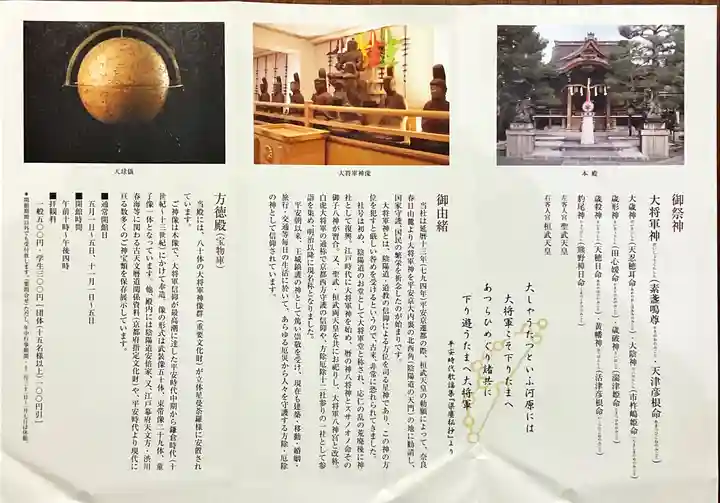 御祭神
大将軍神(素盞嗚尊)・天津彦根命
大歳神(天忍穂耳命)・大陰神(市杵嶋姫命)
歳形神(田心媛命)・歳破神(湍津姫命)
歳殺神(天穂日命)・黄幡神(活津彦根命)
豹尾神(熊野樟日命)
左客人宮 聖武天皇
右客人宮 桓武天皇
本殿
大しゃうたつといふ河原には
大将軍こそ下りたまへ
あつらひめぐり諸共に
下り遊うたまへ大将軍
平安時代歌謡集「梁塵秘抄」より
大将軍神像
御由緒
当社は延暦十三年(七九四年)平安京遷都の際、桓武天皇の勅願によって、奈良
春日山麓より大将軍神を平安京大内裏の北西角(陰陽道の天門)の地に勧請し、
国家守護、国民の繁栄を祈念したのが始まりです。
大将軍神とは、陰陽道・道教の信仰による方位を司る星神であり、この神の方
位を犯すと厳しい咎めを受けるというので、古来、非常に恐れられてきました。
社号は初め、陰陽道のお堂として大将軍堂と称され、応仁の乱の荒廃後に神
社として復興、江戸時代に大将軍神を始め、暦の神八将神とスサノオノ命その
御子八神が習合。又、聖武・桓武両天皇を共にお祀りし、大将軍八神宮と改称、
白虎大将軍の通称で京都西方守護の信仰や、方除厄除十二社参りの一社として参
詣を集め、明治以降に現名称となりました。
平安朝以来、王城鎮護の神として篤い崇敬を受け、現在も建築・移動・婚姻・
旅行・交通等毎日の生活に於いて、あらゆる厄災から人々を守護する方除・厄除
の神として信仰されています。
天球儀
方徳殿(宝物庫)
当殿には、八十体の大将軍神像群(重要文化財)が立体星曼荼羅様に安置され
ています。
ご神像は木像で、大将軍信仰が最高潮に達した平安時代中期から鎌倉時代(十
世紀~十三世紀)にかけて奉造。像の形式は武装像五十体、束帯像二十九体、童
子像一体となっています。他、殿内には陰陽道安倍家、又、江戸幕府天文方・渋川
春海等に関わる古天文暦道関係資料(京都府指定文化財)や、平安時代より現代に
亘る数多くのご神宝類を保存展示しています。
■通常開館日
五月一日~五日、十一月一日~五日
■開館時間
午前十時~午後四時
■拝観料
一般五〇〇円・学生三〇〇円(団体〈十五名様以上〉一〇〇円引)